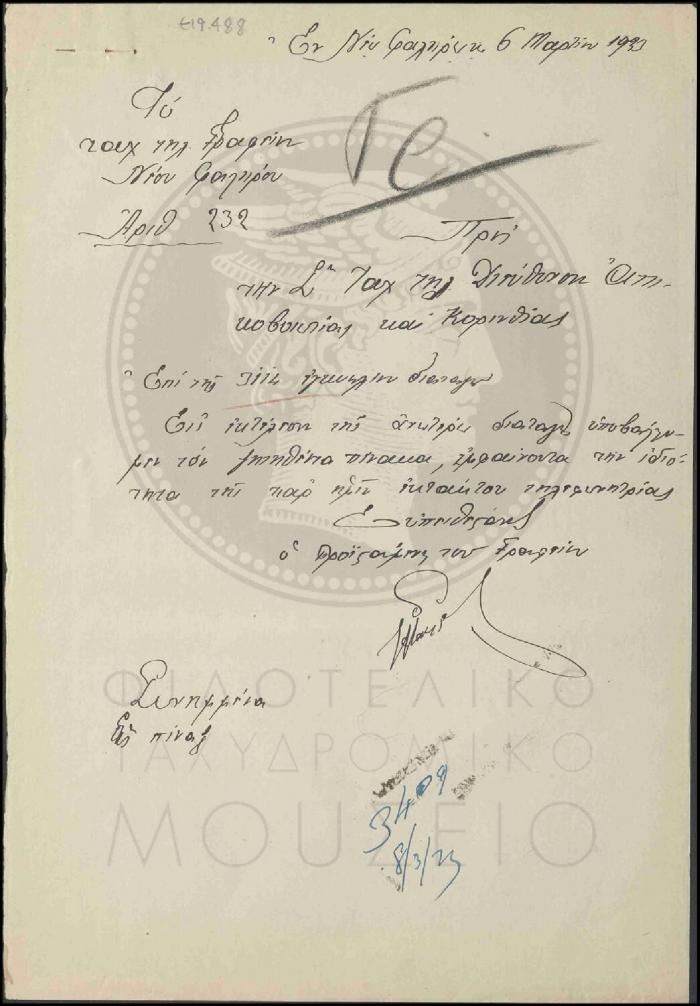 Ε19.488
Ἐν Νέῳ Φαλήρῳ 6 Μαρτίου 1923
Τὸ
ταχ τηλ Γραφεῖον
Νέου Φαλήρου
Ἀριθ 232
Πρὸς
την Σην Ταχ τηλ Διεύθυνσιν Ἀττι-
κοβοιωτίας καὶ Κορινθίας
Ἐπὶ τῆς 3114 ἐγκυκλίου διαταγῆς
Εἰς ἐκτέλεσιν τῆς ἀνωτέρω διαταγῆς ὑποβάλλο-
μεν τὸν ζητηθέντα πίνακα, ἐμφαίνοντα την ἰδιό-
τητα τῆς παρ' ἡμῖν ἐκτάκτου τηλεφωνητρίας
Εὐπειθέστατος
ὁ Προϊστάμενος του Γραφείου
Συνημμένα
Εἷς πίναξ
3409
8/3/23
ΦΙΛΟΤΕΛΙΚΟ
ΤΑΧΥΔΡΟΜΙΚΟ
ΜΟΥΣΕΙΟ